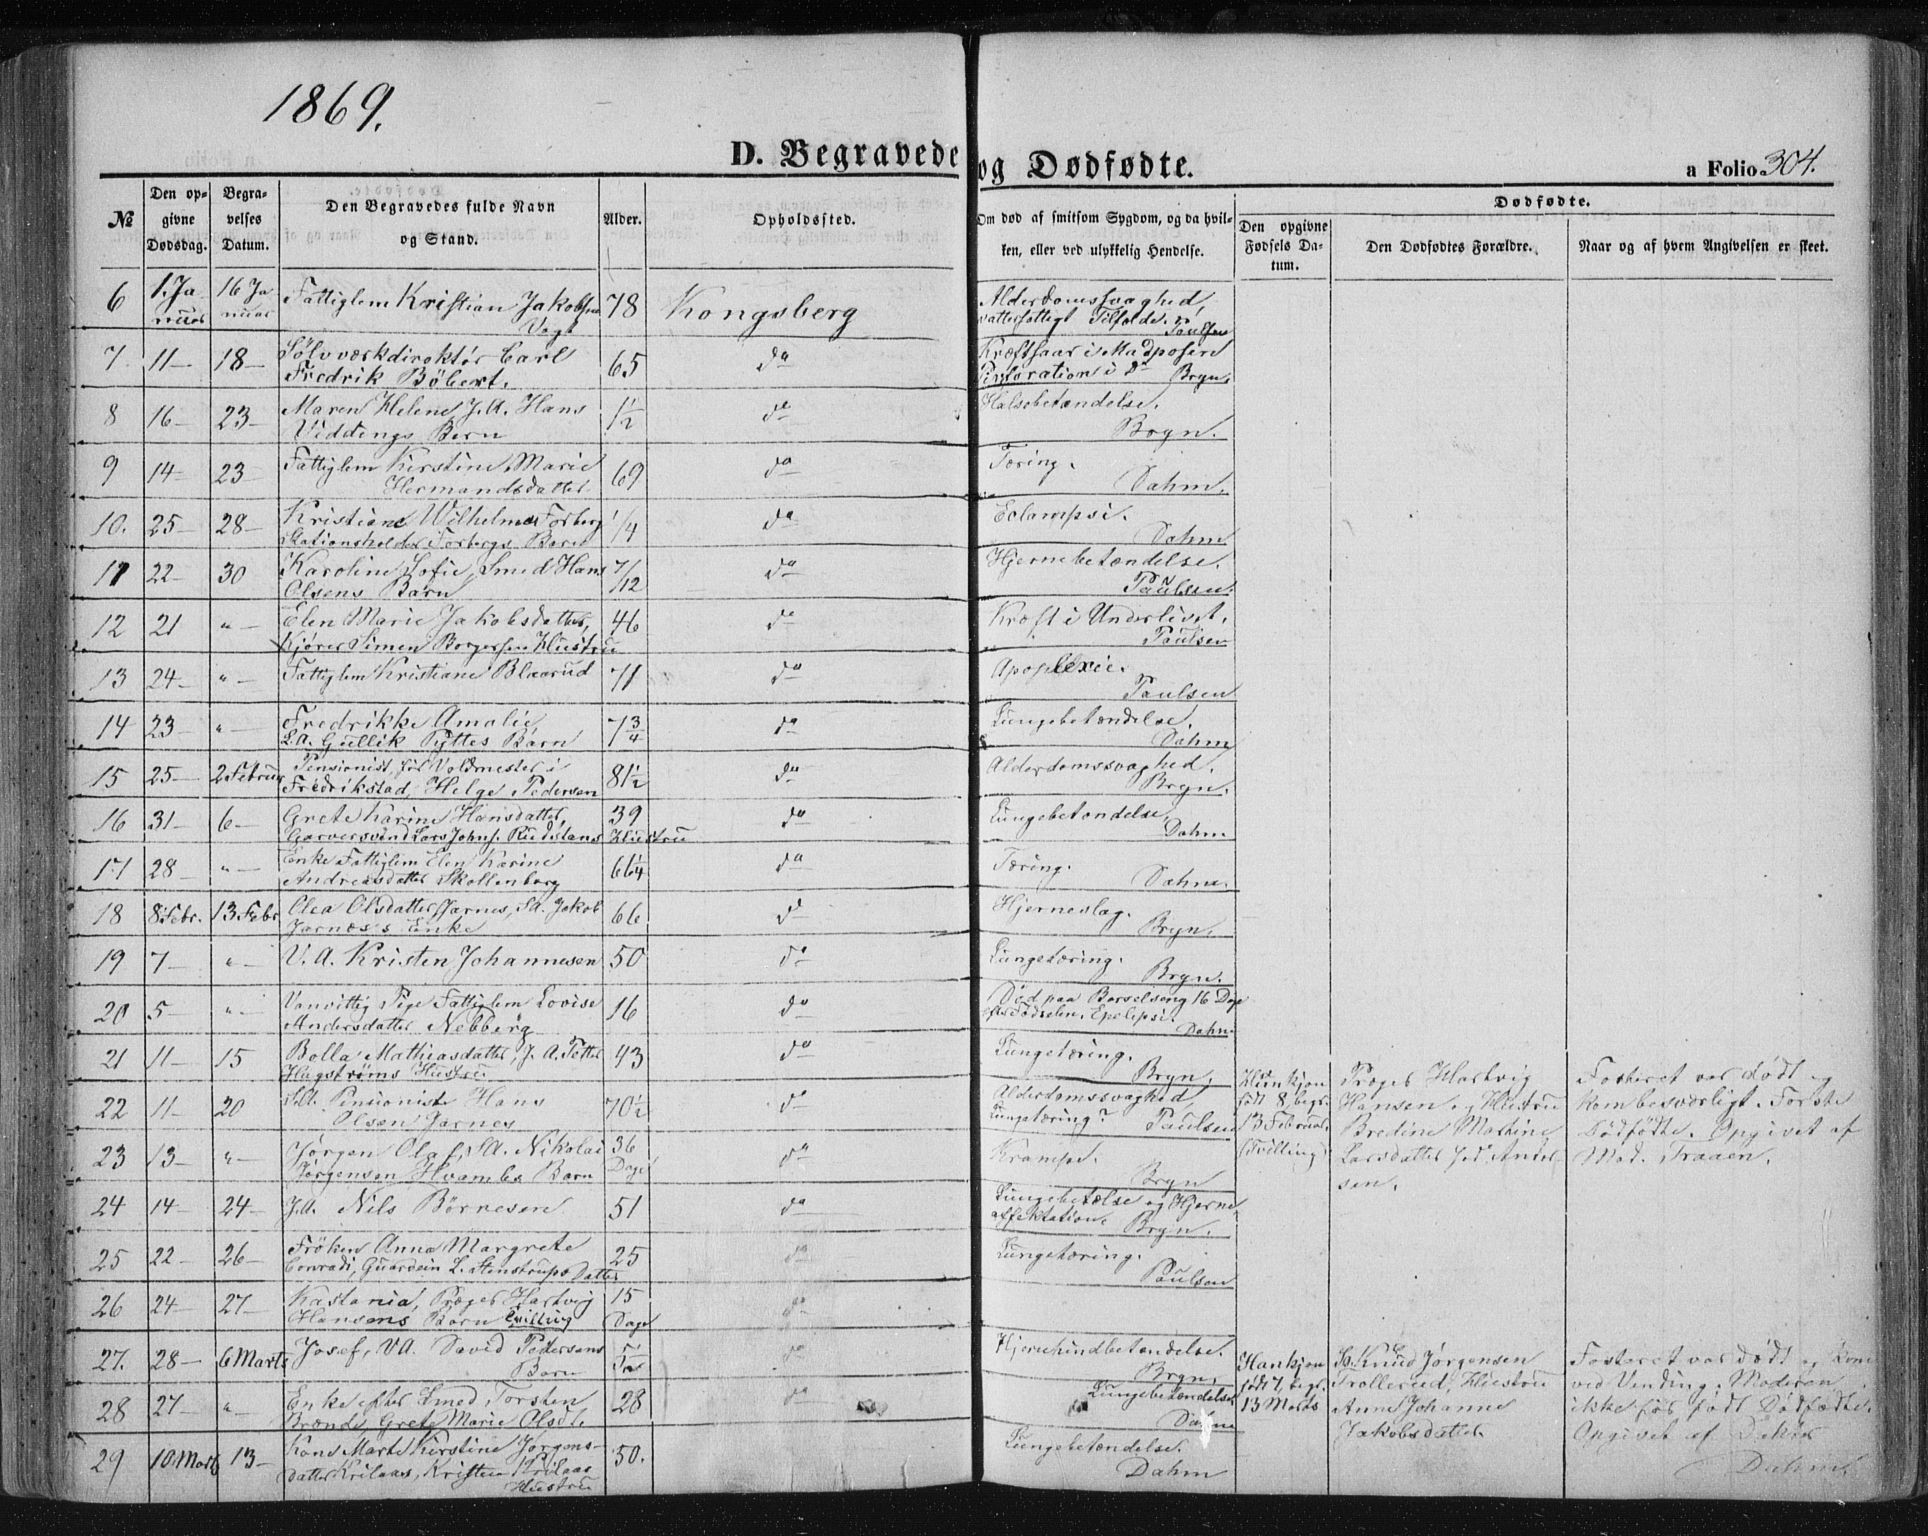 1869.
D. Begravede og Dødfødte.
a Folio 304.
№ | Den opgivne Dødsdag. | Begravelses Datum. | Den Begravedes fulde Navn og Stand. | Alder. | Opholdssted. | Om død af smitsom Sygdom, og da hvilken, eller ved ulykkelig Hendelse. | Dødfødte. | Den opgivne Fødsels Datum. | Den Dødfødtes Forældre. | Naar og af hvem Angivelsen er skeet.
6 | 1. Januar | 16 Januar | Fattiglem Kristian Jakobsen Vogt | 78 | Kongsberg | Alderdomssvaghed, vattersottigt Tilfælde. Paulsen
7. | 11 — | 18 — | Sölvværkdirektör Carl Fredrik Böbert. | 65 | do | Kræftsaar i Madposen Perforation i do Bryn.
8 | 16 — | 23 — | Maren Helene, J.A. Hans Viddings Barn | 1 1/2 | do | Halsebetændelse. Bryn.
9 | 14 — | 23 — | Fattiglem Kirstine Marie Hermandsdatter | 69 | do | Tæring. Dahm.
10. | 25 — | 28 — | Kristiane Wilhelmine Forberg Stationsholder Forbergs Barn | 1/4 | do | Eclampsi. Dahm
11 | 22 — | 30 | Karoline Sofie, Smed Hans Olsens Barn | 7/12 | do | Hjernebetændelse. Paulsen.
12 | 21 | " — | Elen Marie Jakobsdatter, Kjörer Simen Borgersen Hustru | 46 | do | Kræft i Underlivet. Paulsen
13 | 24 — | " — | Fattiglem Kristiane Blaarud | 71 | do | Apoplexie. Paulsen
14 | 23 — | " — | Fredrikke Amalie L.A. Gullik Pyttes Barn | 7 3/4 | do | Lungebetændelse. Dahm
15 | 25 — | 2 Februar | Pensionist, för Voldmester i Fredrikstad, Helge Pedersen | 81 1/2 | do | Alderdomssvaghed. Bryn.
16 | 31 — | 6 — | Grete Karine Hansdatter, Garversvend Lars Johns. Rudslands Hustru | 39 | do | Lungebetændelse, Dahm.
17 | 28 — | " — | Enke Fattiglem Elen Karine Andreasdatter Skollenborg | 66 1/4 | do | Tæring. Dahm.
18 | 8 Febr. | 13 Febr | Olea Olsdatter Jarnes, S.A. Jakob Jarnæs's Enke | 66 | do | Hjerneslag. Bryn.
19 | 7 — | " — | V.A. Kristen Johannesen | 50 | do | Lungetæring. Bryn.
20 | 5 — | " — | Vanvittig Pige Fattiglem Lovise Andersdatter Nebberg | 16 | do | Död paa Barselseng 16 Dage efter Födselen, Epelepsi. Dahm
21 | 11 — | 15 | Bolla Mathiasdatter, J.A. Petter Hagströms Hustru | 43 | do | Lungetæring. Bryn.
22 | 11 — | 20 | Pensionist Hans Olsen Jarnes | 70 1/2 | do | Alderdomssvaghed Lungetæring? Paulsen
Kvinkjön födt 8, begr. 13 Februar (Tvilling) | Præger Hartvig Hansen og Hustru Bredine Martine Larsdatter | Fosteret var dødt og kom besværligt. Første Dødfødte. Opgivet af Mad. Traaen.
23 | 13 — | " — | Jörgen Olaf, S.A. Nikolai Jörgensen Hvambs Barn | 36 Dage | do | Krampe. Bryn
24 | 14 — | 24 — | J.A. Nils Börnesen | 51 | do | Lungebetælse og Hjerneaffektation. Bryn.
25 | 22 — | 26 — | Fröken Anna Margrete Conradi, Guardein L. Stenstrups Datter | 25 | do | Lungetæring. Paulsen
26 | 24 — | 27 — | Kastania, Præger Hartvig Hansens Barn Tvilling | 15 Dage | do
27. | 28 — | 6 Marts | Josef, V.A. David Pedersens Barn | do | Hjernehindebetændelse. Bryn.
Hankjön födt 7, begr. 13 Marts | Knud Jörgensen Trollerud, Hustru Anne Johanne Jakobsdatter | Fosteret var dødt og kom ved Vending. Moderen ikke før født Dødfødte. Opgivet af Doktor Dahm.
28 | 27 — | " | Enke efter Smed Torsten Brænde, Grete Marie Olsdt. | 28 | do | Lungebetændelse Dahm
29 | 10 Marts | 13 — | Kone Marte Kirstine Jörgensdatter Krilaas, Kristen Krilaas Hustru | 50. | Lungebetændelse. Dahm